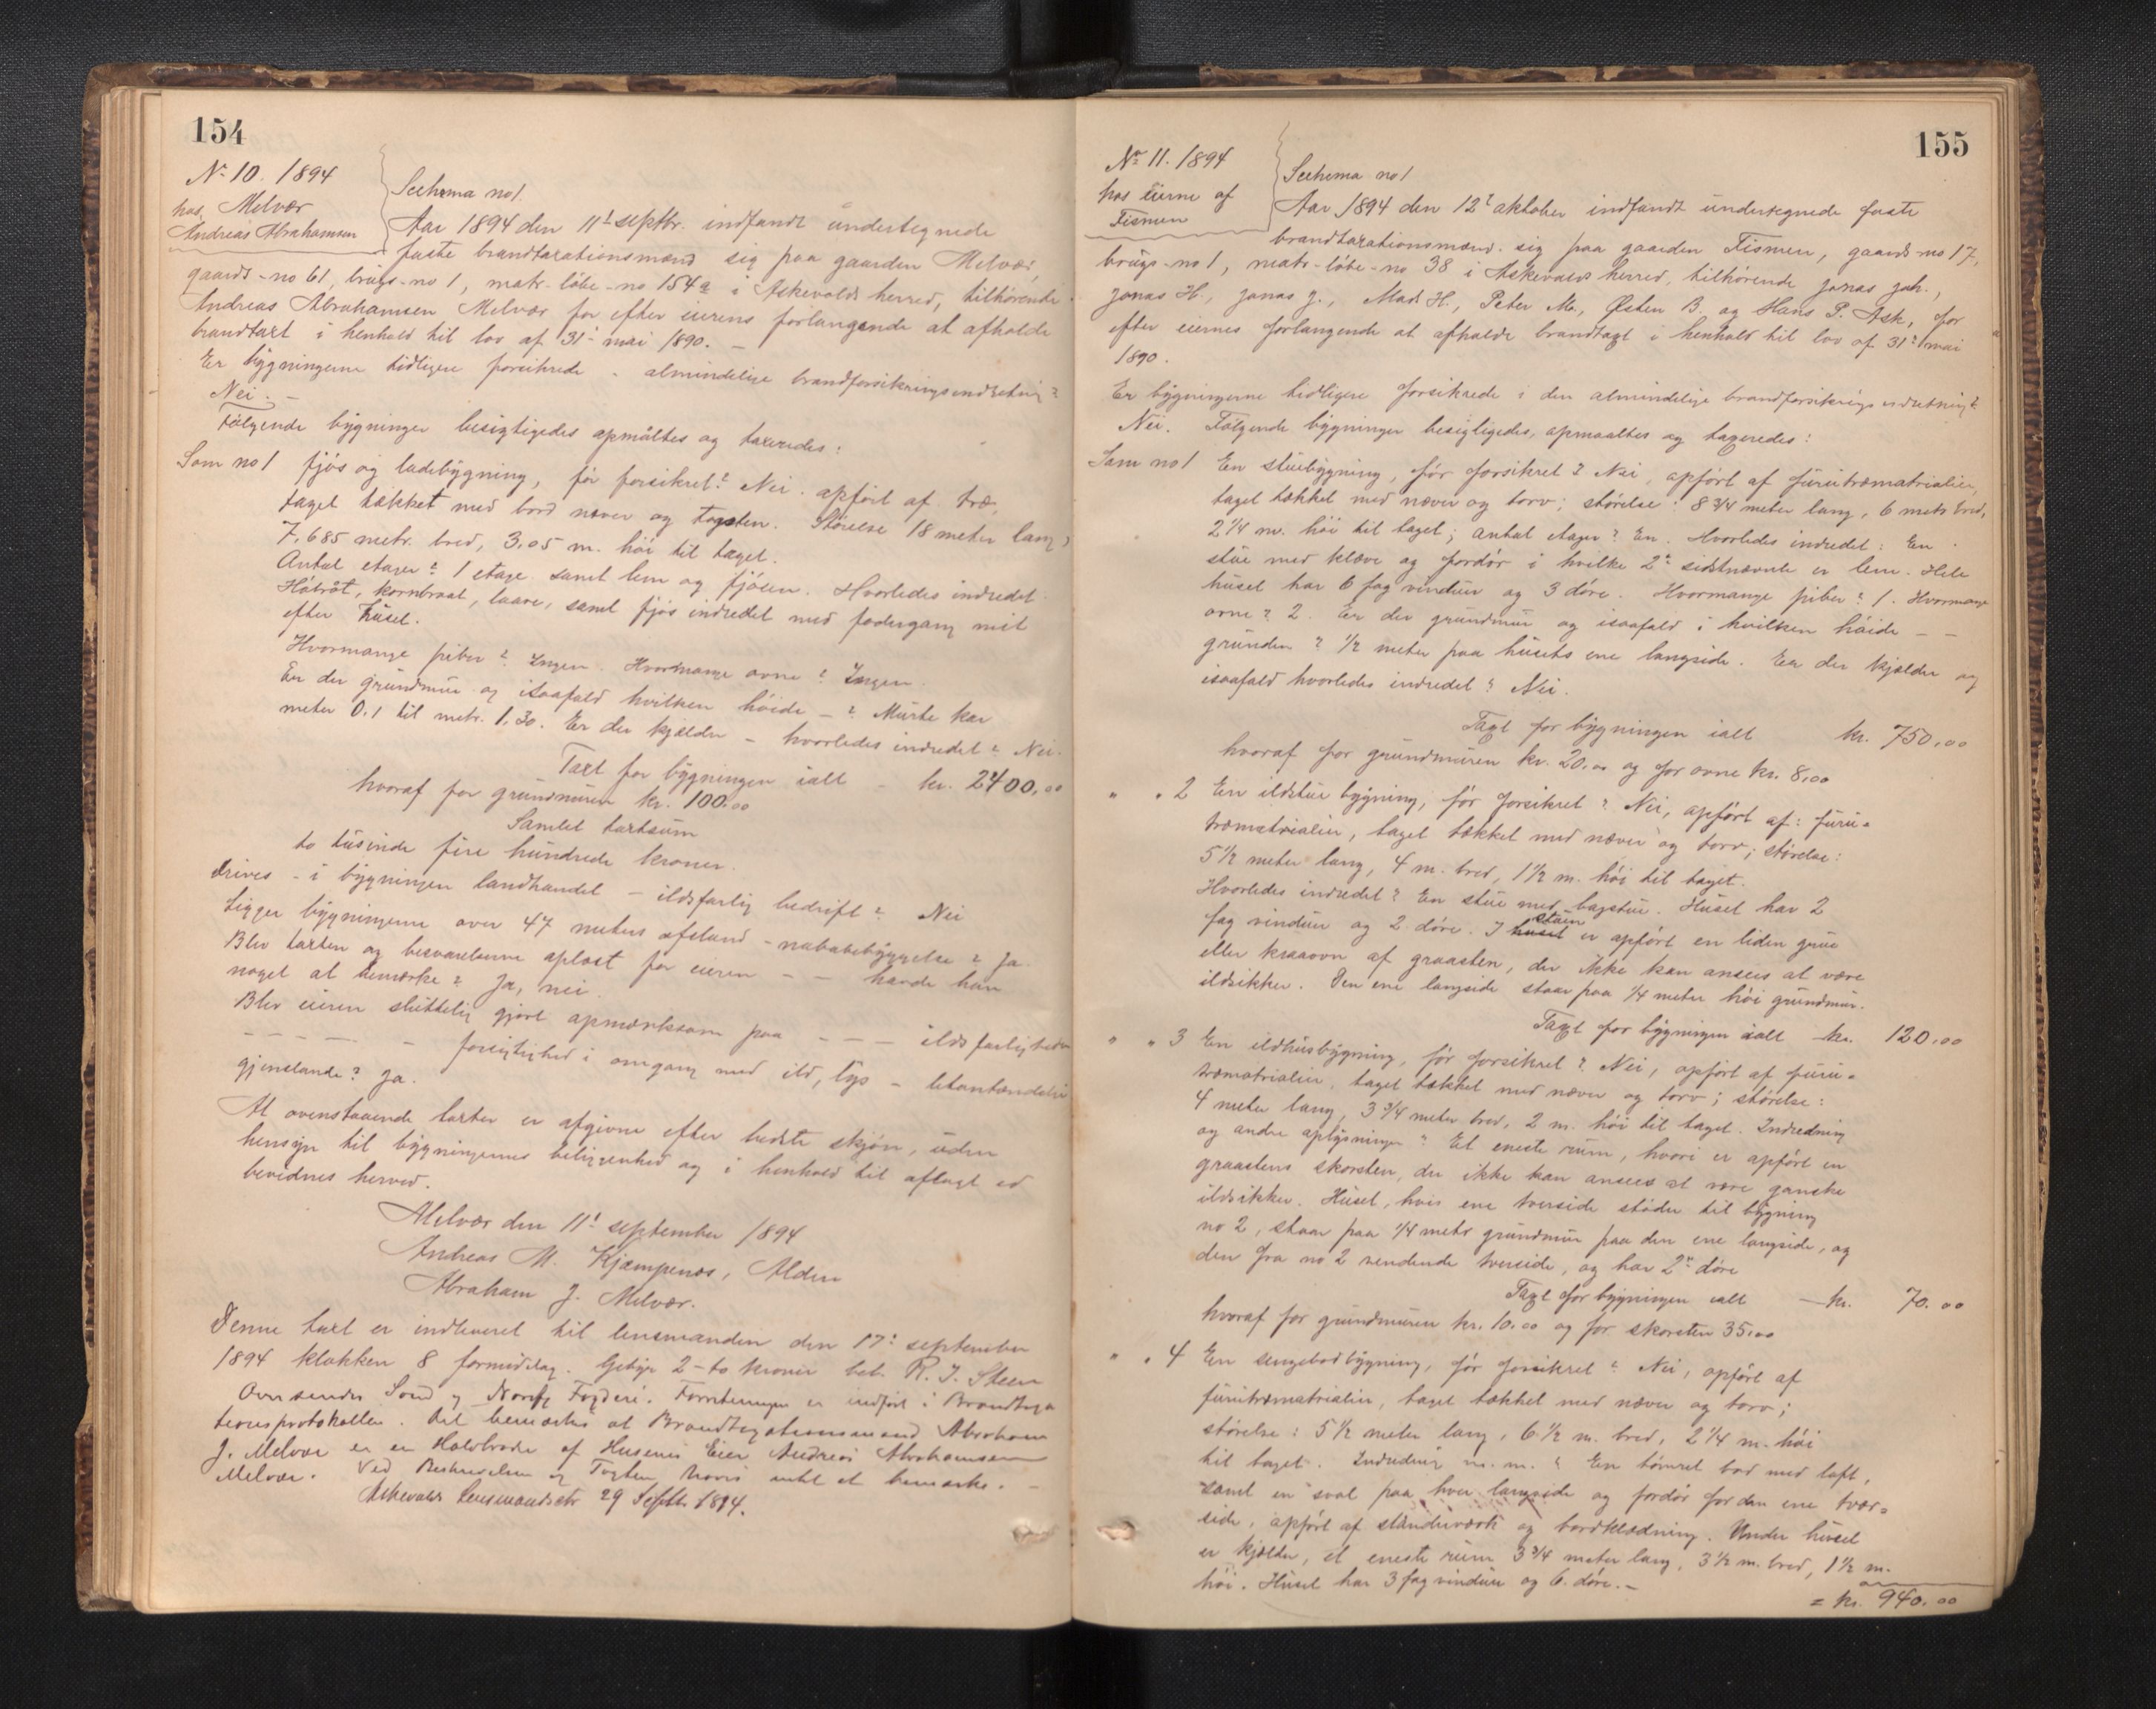 154
No 10. 1894
hos Melvær
Andreas Abrahamsen
Schema no 1.
Aar 1894 den 11t septbr. indfandt undertegnede
faste brandtaxationsmænd sig paa gaarden Melvær,
gaards-no 61, brugs-no 1, matr-løbe-no 154a i Askevolds herred, tilhørende
Andreas Abrahamsen Melvær for efter eierens forlangende at afholde
brandtaxt i henhold til lov af 31t mai 1890. –
Er bygningerne tidligere forsikrede - almindelige brandforsikringsindretning?
Nei. –
Følgende bygninger besigtigedes opmåltes og taxeredes:
Som no 1 fjøs og ladebygning, før forsikret? Nei. opført af træ,
taget tækket med bord næver og tagsten. Størelse 18 meter lang,
7,685 metr. bred, 3,05 m. høi til taget.
Antal etager? 1 etage samt lem og fjøsen. Hvorledes indredet.
Høbråt, kornbraat, laave, samt fjøs indredet med fodergang mit
efter huset.
Hvormange piber? Ingen. Hvormange ovne? Ingen.
Er der grundmur og isaafald hvilken høide – ? Murte kar
meter 0.1 til metr. 1.30. Er der kjælder – hvorledes indredet? Nei.
Taxt for bygningen ialt – kr. 2400,00
hvoraf for grundmuren kr. 100.00
Samlet taxtsum
to tusinde fire hundrede kroner.
Drives - i bygningen landhandel – ildsfarlig bedrift? Nei
Ligger bygningerne over 47 meters afstand – nabobebyggelse? Ja.
Blev taxten og besvarelserne oplæst for eieren – – havde han
noget at bemærke? Ja, nei.
Blev eieren sluttelig gjort opmærksom paa – – – ildsfarligheden
– – – – forsigtighed i omgang med ild, lys – letantændelige
gjenstande? Ja.
At ovenstaaende taxter er afgivne efter bedste skjøn, uden
hensyn til bygningernes beliggenhed og i henhold til aflagt ed
bevidnes herved.
Melvær den 11t september 1894
Andreas M. Kjempenes, Alden
Abraham J. Melvær.
Denne taxt er indleveret til lensmanden den 17t september
1894 klokken 8 formiddag. Gebyr 2-to kroner bet. R. J. Steen
Oversendes Sønd og Nordfj Fogderi. Forretningen er indført i Brandtaxa
tionsprotokollen. Det bemærkes at Brandtaxationsmand Abraham
J. Melvær er en Halvbroder af Husenes Eier Andreas Abrahamsen
Melvær. Ved Beskrivelsen og Taxten haves intet at bemærke. –
Askevolds Lensmandsktr 29 Septbr 1894.
155
No 11. 1894
hos eierne af
Fismen
Schema no 1
Aar 1894 den 12t oktober indfandt undertegnede faste
brandtaxationsmænd sig paa gaarden Fismen, gaards-no 17,
brugs-no 1, matr-løbe-no 38 i Askevolds herred, tilhørende Jonas Joh.,
Jonas H., Jonas J., Mads H., Peter M., Østen B. og Hans P. Ask, for
efter eiernes forlangende at afholde brandtaxt i henhold til lov af 31t mai
1890.
Er bygningerne tidligere forsikrede i den almindelige brandforsikrings indretning?
Nei. Følgende bygninger besigtigedes, opmaaltes og taxeredes:
Som no 1 En stuebygning, før forsikret? Nei, opført af furutræmatrialier,
taget tækket med næver og torv; størelse: 8 3/4 meter lang, 6 metr bred,
2 1/4 m. høi til taget; antal etager? En. Hvorledes indredet: En
stue med kleve og fordør i hvilke 2de sidstnævnte er lem. Hele
huset har 6 fag vinduer og 3 døre. Hvormange piber? 1. Hvormange
ovne? 2. Er der grundmur og isaafald i hvilken høide – –
grunden? 1/2 meter paa husets ene langside. Er der kjælder og
isaafald hvorledes indredet? Nei.
Taxt for bygningen ialt kr. 750,00
hvoraf for grundmuren kr. 20.00 og for ovne kr. 8,00
" " 2 En ildstue bygning, før forsikret? Nei, opført af: furu-
træmatrialier, taget tækket med næver og torv; størelse:
5 1/2 meter lang, 4 m. bred, 1 1/2 m. høi til taget.
Hvorledes indredet? En stue med bagstue. Huset har 2
fag vinduer og 2 døre. I huset stuen er opført en liden grue
eller kraaovn af graasten, der ikke kan ansees at være
ildsikker. Den ene langside staar paa 1/4 meter høi grundmur.
Taxt for bygningen ialt kr. 120,00
" " 3 En ildhusbygning, før forsikret? Nei, opført af furu-
træmatrialier, taget tækket med næver og torv; størelse:
4 meter lang, 3 3/4 meter bred, 2 m. høi til taget. Indredning
og andre oplysninger? Et eneste rum, hvori er opført en
graastens skorsten, der ikke kan ansees at være ganske
ildsikker. Huset, hvis ene tverside støder til bygning
no 2, staar paa 1/4 metr grundmur paa den ene langside, og
den fra no 2 vendende tverside, og har 2de døre
Taxt for bygningen ialt – kr. 70.00
hvoraf for grundmuren kr. 10.00 og for skorsten 35,00
" " 4 En sengebodbygning, før forsikret? Nei, opført af
furutræmatrialier, taget tækket med næver og torv;
størelse: 5 1/2 meter lang, 6 1/2 m. bred, 2 1/4 m. høi
til taget. Indredning m. m.? En tømret bod med loft,
samt en sval paa hver langside og fordør for den ene tvær-
side, opført af standerværk og bordklædning. Under huset
er kjælder, et eneste rum 3 3/4 meter lang, 3 1/2 m. bred, 1 1/2 m.
høi. Huset har 3 fag vinduer og 6 døre. –
= kr. 940.00